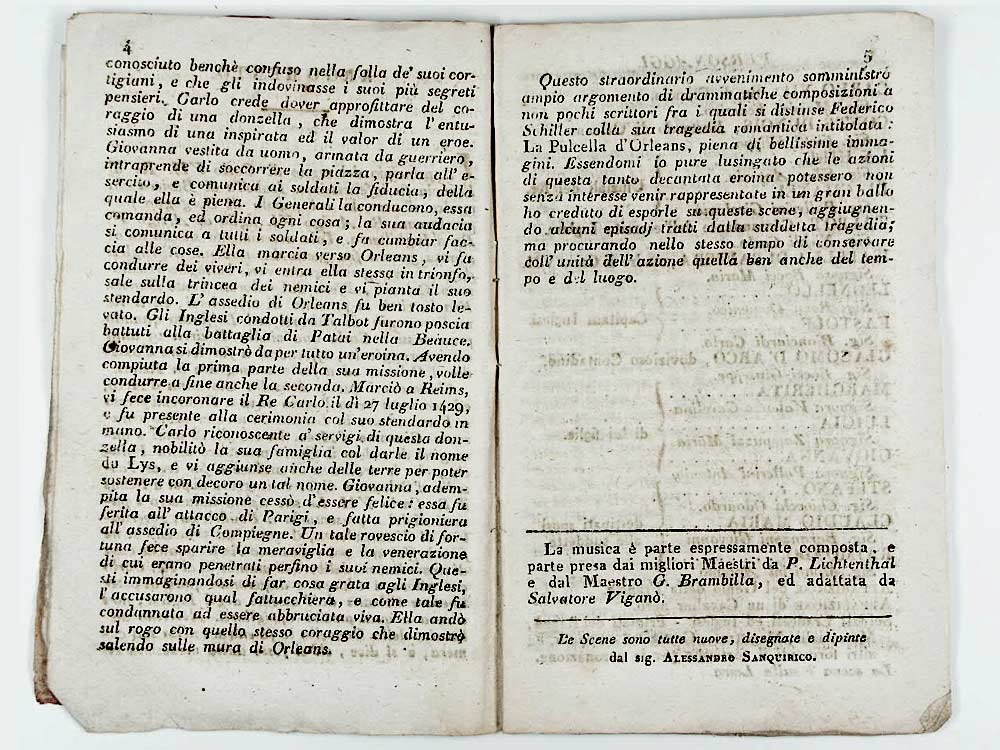 4
conosciuto benchè confuso nella folla de' suoi cor-
tigiani, e che gli indovinasse i suoi più segreti
pensieri. Carlo crede dover approfittare del co-
raggio di una donzella, che dimostra l'entu-
siasmo di una inspirata ed il valor di un eroe.
Giovanna vestita da uomo, armata da guerriero,
intraprende di soccorrere la piazza, parla all'e-
sercito, e comunica ai soldati la fiducia, della
quale ella è piena. I Generali la conducono, essa
comanda, ed ordina ogni cosa; la sua audacia
si comunica a tutti i soldati, e fa cambiar fac-
cia alle cose. Ella marcia verso Orleans, vi fa
condurre dei viveri, vi entra ella stessa in trionfo,
sale sulla trincea dei nemici e vi pianta il suo
stendardo. L'assedio di Orleans fu ben tosto le-
vato. Gli Inglesi condotti da Talbot furono poscia
battuti alla battaglia di Patai nella Beauce.
Giovanna si dimostrò da per tutto un'eroina. Avendo
compiuta la prima parte della sua missione, volle
condurre a fine anche la seconda. Marciò a Reims,
vi fece incoronare il Re Carlo il dì 27 luglio 1429,
e fu presente alla cerimonia col suo stendardo in
mano. Carlo riconoscente a' servigi di questa don-
zella, nobilitò la sua famiglia col darle il nome
du Lys, e vi aggiunse anche delle terre per poter
sostenere con decoro un tal nome. Giovanna, adem-
pita la sua missione cessò d'essere felice: essa fu
ferita all'attacco di Parigi, e fatta prigioniera
all'assedio di Compiegne. Un tale rovescio di for-
tuna fece sparire la meraviglia e la venerazione
di cui erano penetrati perfino i suoi nemici. Que-
sti immaginandosi di far cosa grata agli Inglesi,
l'accusarono qual fattucchiera, e come tale fu
condannata ad essere abbruciata viva. Ella andò
sul rogo con quello stesso coraggio che dimostrò
salendo sulle mura di Orleans.
5
Questo straordinario avvenimento somministrò
ampio argomento di drammatiche composizioni a
non pochi scrittori fra i quali si distinse Federico
Schiller colla sua tragedia romantica intitolata:
La Pulcella d'Orleans, piena di bellissime imma-
gini. Essendomi io pure lusingato che le azioni
di questa tanto decantata eroina potessero non
senza interesse venir rappresentate in un gran ballo
ho creduto di esporle su queste scene, aggiugnen-
do alcuni episodj tratti dalla suddetta tragedia;
ma procurando nello stesso tempo di conservare
coll'unità dell'azione quella ben anche del tem-
po e del luogo.
La musica è parte espressamente composta, e
parte presa dai migliori Maestri da P. Lichtenthal
e dal Maestro G. Brambilla, ed adattata da
Salvatore Viganò.
Le Scene sono tutte nuove, disegnate e dipinte
dal sig. ALESSANDRO SANQUIRICO.